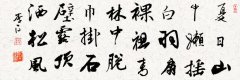 夏日山
中嬾搖
白羽扇
裸袒青
林中脫
巾掛石
壁露頂
洒松風